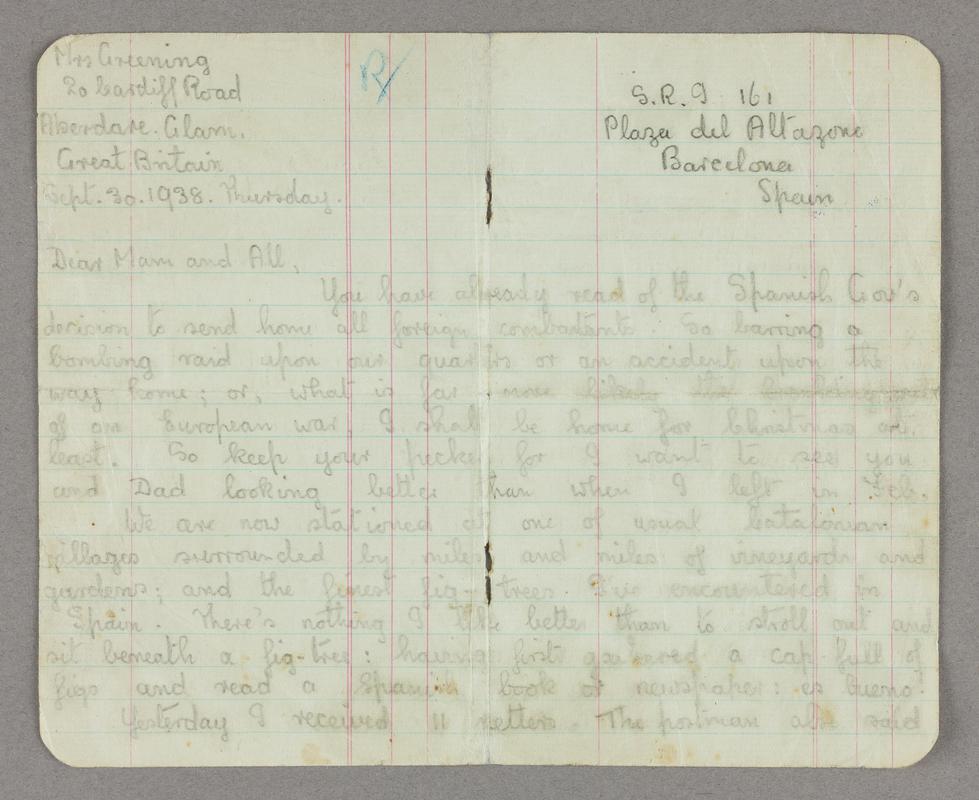 Mrs Greening
20 Cardiff Road
Aberdare. Glam.
Great Britain
Sept. 30. 1938. Thursday.
R
S.R.I 161
Plaza del Altazona
Barcelona
Spain
Dear Mam and All,
You have already read of the Spanish Gov's
decision to send home all foreign combatants. So barring a
bombing raid upon our quarters or an accident upon the
way home; or, what is far more likely the
of an European war, I shall be home for Christmas at
least. So keep your pecker for I want to see you
and Dad looking better than when I left in Feb.
We are now stationed at one of usual Catalonian
villages surrounded by miles and miles of vineyards and
gardens; and the finest fig-trees I've encountered in
Spain. There's nothing I like better than to stroll out and
sit beneath a fig-tree: having first gathered a cap-full of
figs and read a Spanish book or newspaper: es bueno.
Yesterday I received 11 letters. The postman also said